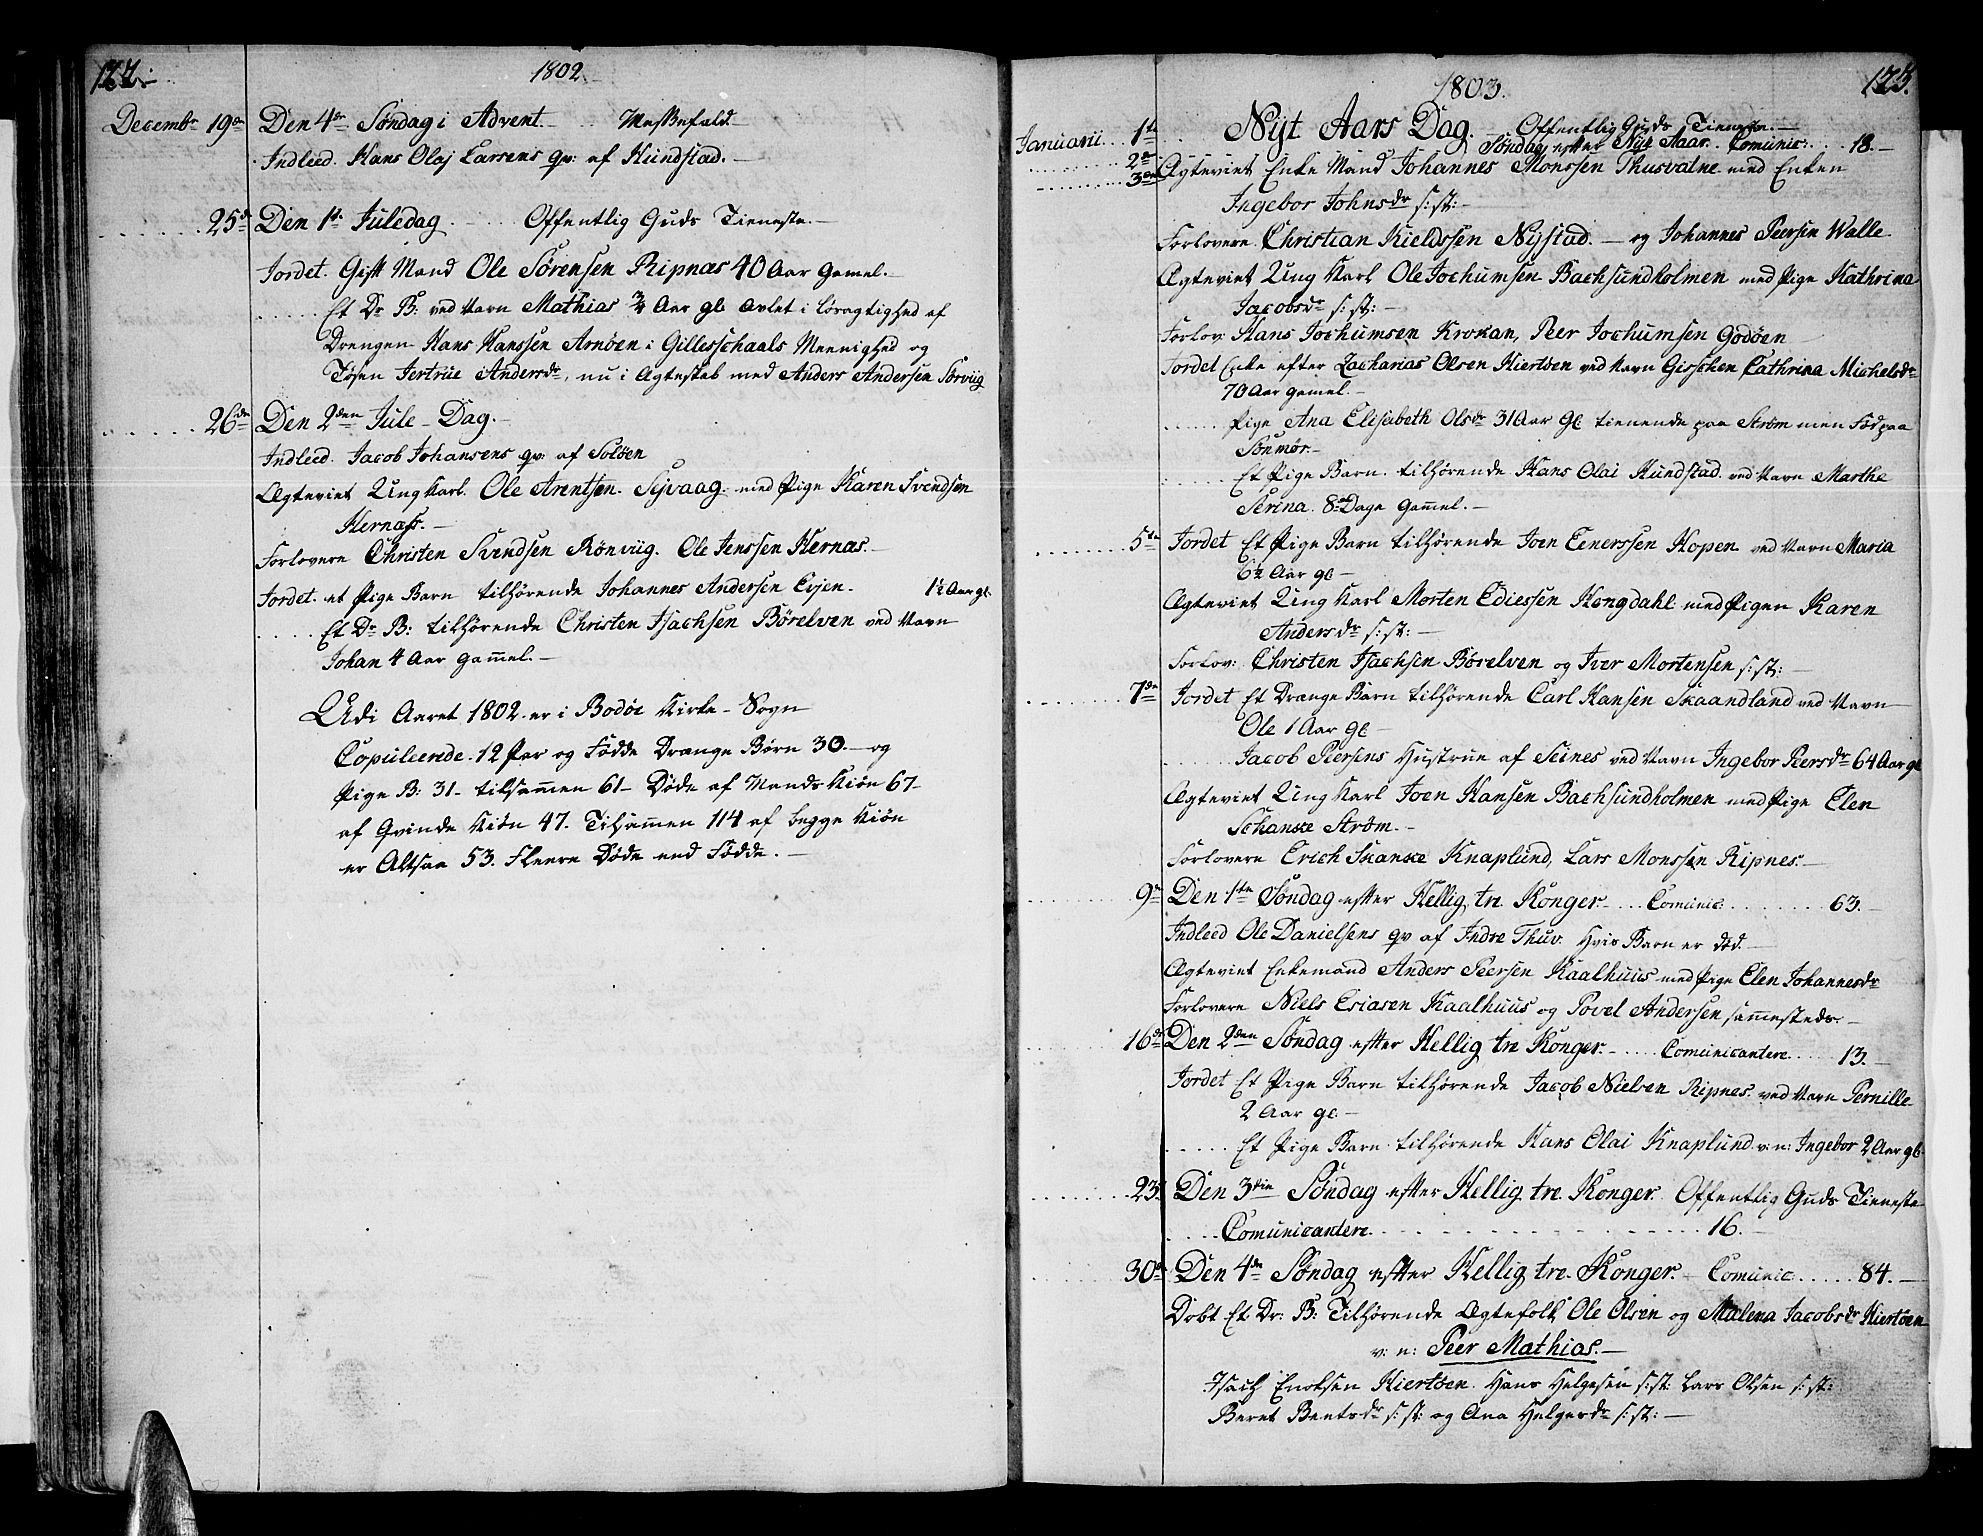 122.
1802
Decembr 19de Den 4de Søndag i Advent. Messefald.
Indleed. Hans Olaj Larsens qv: af Hundstad.
25de Den 1te Juledag. Offentlig Guds Tieneste.
Jordet. Gift Mand Ole Sørensen Ripnæs 40 Aar Gamel.
Et Dr B: ved Navn Mathias 3/4 Aar gl avlet i Løsagtighed af
Drengen Hans Hanssen Arnøen i Gillesschaals Meenighed og
Tøsen Jertrue Andersdr, nu i Ægteskab med Anders Andersen Sørviig
26de Den 2den Jule-Dag.
Indleed. Jacob Johansens qv: af Soløen
Ægteviet Ung Karl. Ole Arentsen. Syvaag. med Pige Karen Svendsen
Hernæss.
Forlovere Christen Svendsen Rønviig. Ole Jenssen Hernæs.
Jordet. et Pige Barn tilhørende Johannes Andersen Evjen. 1½ Aar gl.
Et Dr B: tilhørende Christen Isachsen Børelven ved Navn
Johan 4 Aar Gamel.
Udi Aaret 1802 er i Bodøe Kirke-Sogn
Copuleerede 12 Par og Fødde Drænge Børn 30. og
Pige B: 31 tilsammen 61 Døde af Mands Kiøn 67
af Qvinde Kiøn 47. Tilsammen 114 af begge Kiøn
er Altsaa 53. Fleere Døde end Fødde.
1803.
123.
Januarii 1te Nyt Aars Dag. Offentlig Guds Tieneste.
2den Søndag efter Nye Aar. Comunic. 18.
3die Ægteviet Enke Mand Johannes Monssen Thusvatne med Enken
Ingebor Johnsdr s: st:
Forlovere Christian Kieldssen Nystad. og Johannes Peersen Walle
Ægteviet Ung Karl Ole Jochumsen Bachsundholmen med Pige Kathrina
Jacobsdr s: st:
Forlov Hans Jochumsen Krokan, Peer Jochumsen Godøen
Jordet Enke efter Zacharias Olsen Hiertøen ved Navn Gisschen Cathrina Michelsdr
70 Aar gamel.
Pige Ana Elisabeth Olsdr 31 Aar gl tienende paa Strøm men Fød paa
Sønmør.
Et Pige Barn tilhørende Hans Olai Hundstad. ved Navn Marthe
Serina. 8te Dage Gammel.
5te Jordet Et Pige Barn tilhørende Joen Eenerssen Hopen ved Navn Maria
6½ Aar gl
Ægteviet Ung Karl Morten Ediessen Hongdahl med Pigen Karen
Andersdr s: st:
Forlov: Christen Isachsen Børelven og Iver Mortensen s: st:
7de Jordet Et Drænge Barn tilhørende Carl Hansen Skaandland ved Navn
Ole 1 Aar gl
Jacob Peersens Hustrue af Seines ved Navn Ingebor Peersdr 64 Aar gl
Ægteviet Ung Karl Joen Hansen Bachsundholmen med Pige Elen
Schanke Strøm.
Forlovere Erich Skanke Knaplund, Lars Monssen Ripnes.
9de Den 1te Søndag efter Hellig tre Konger. Comunic. 63.
Indleed Ole Danielsens qv af Indre Thuv. Hvis Barn er død.
Ægteviet Enkemand Anders Peersen Kaalhuus med Pige Elen Johannesdr
Forlovere Niels Esiasen Kaalhuus og Povel Andersen sammesteds.
16de Den 2den Søndag efter Hellig tre Konger. Comunicantere 13.
Jordet Et Pige Barn tilhørende Jacob Nielsen Ripnes ved Navn Pernille
2 Aar gl.
Et Pige Barn tilhørende Hans Olai Knaplund v: n: Ingebor 2 Aar gl
23. Den 3die Søndag efter Hellig tre Konger. Offentlig Guds Tieneste
Comunicantere 16.
30de Den 4de Søndag efter Hellig tre Konger. Comunic 84.
Døbt Et Dr: B: Tilhørende Ægtefolk Ole Olsen og Malena Jacobsdr Hiertøen
v: n: Peer Mathias.
Isach Enoksen Hiertøen. Hans Helgesen s: st: Lars Olsen s: st:
Beret Bentsdr s: st: og Ana Helgesdr s: st: